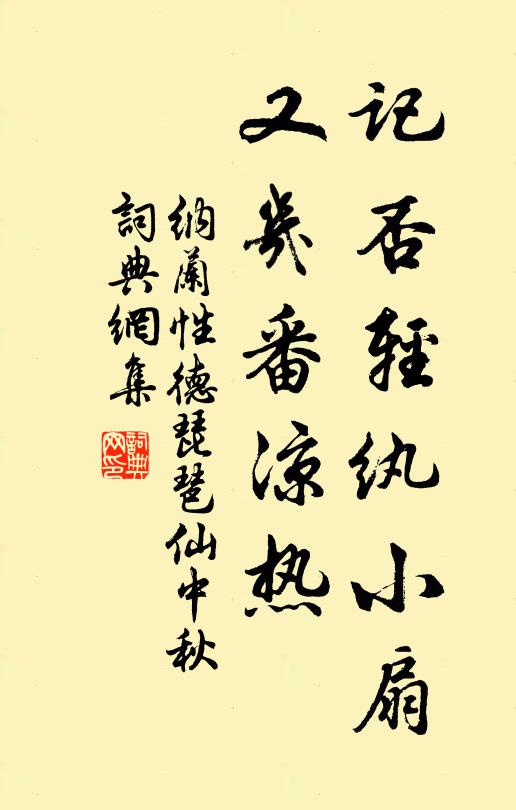 记否轻纨小扇
又几番凉热
纳兰性德琵琶仙中秋
词典网集
词典网印